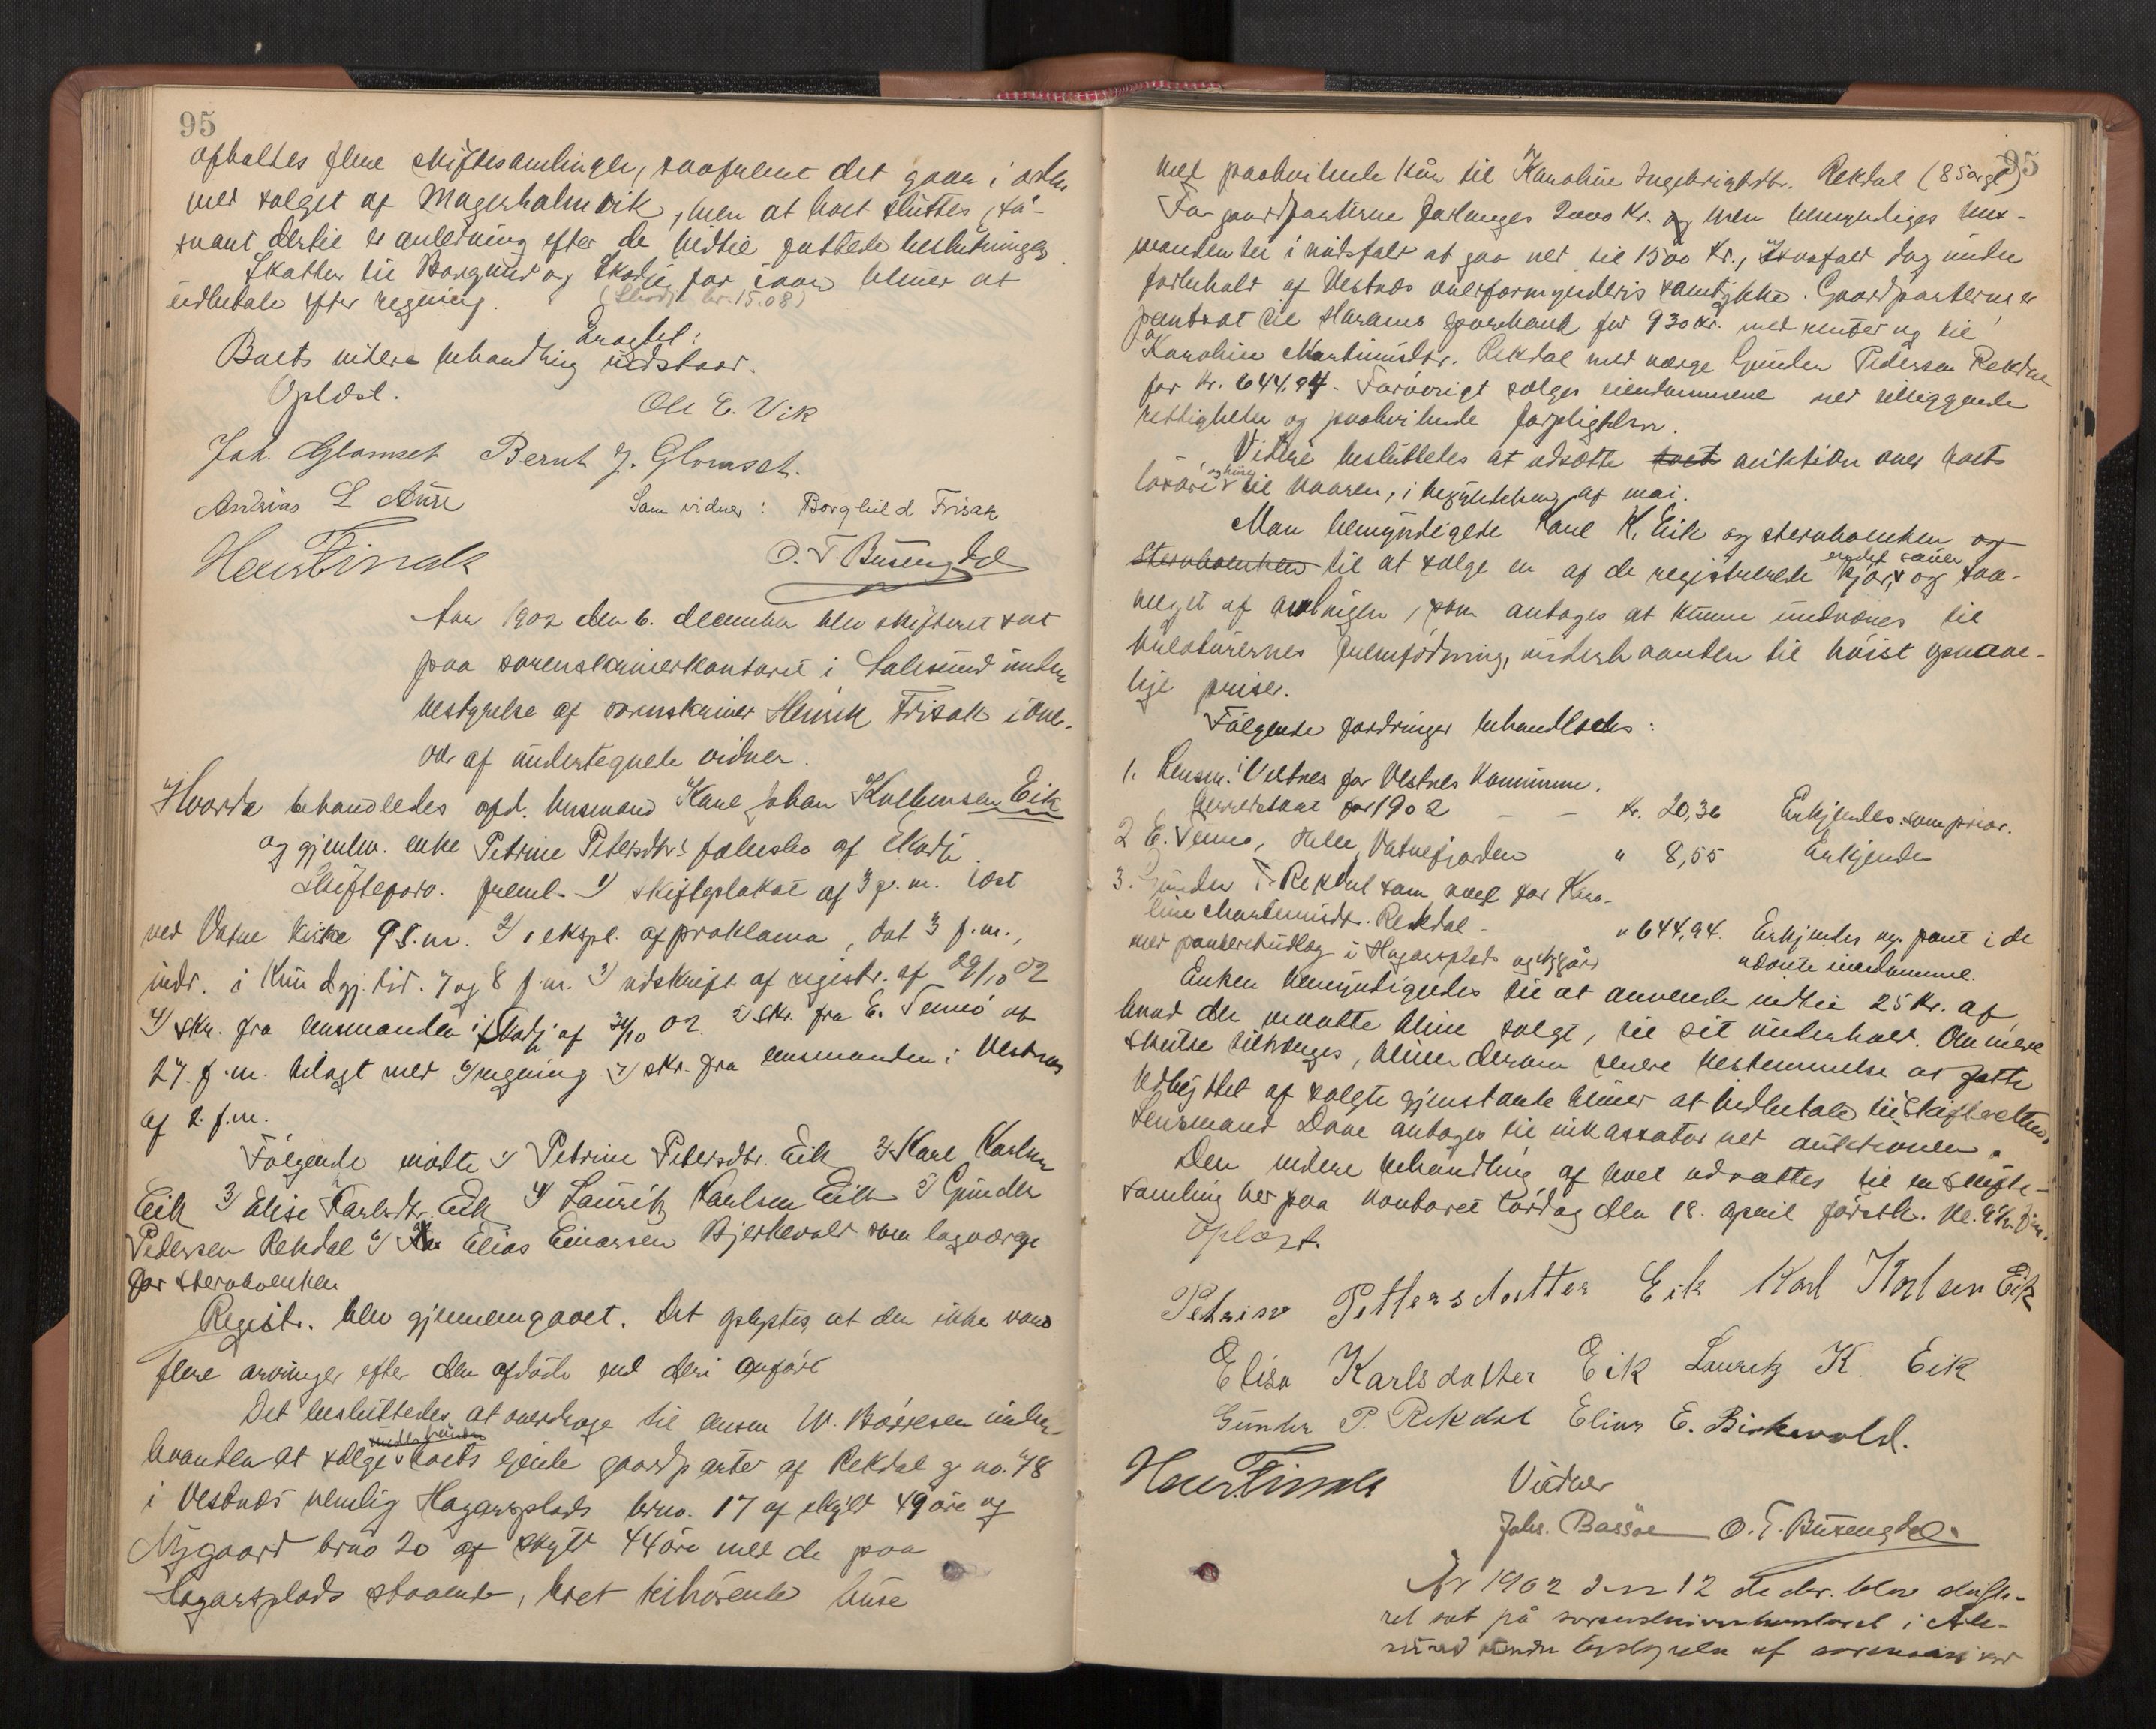 95
afholdes flere skiftesamlinger, saafremt det gaar i orden
med salget af Magerholmvik, men at boet sluttes, så-
snart dertil er anledning efter de hidtil fattede beslutninger.
Skatter til Borgund og Skodje for iaar bliver at
udbetale efter regning. (Skodje kr. 15.08)
Eragtet:
Boets videre behandling udstaar.
Oplæst.
Ole E. Vik
Joh. Glomset Bernt J. Glomset.
Andreas L Aure Som vidner: Borghild Frisak
Henr Frisak O. T. Busengdal
Aar 1902 den 6. december blev skifteret sat
paa sorenskriverkontoret i Aalesund under
bestyrelse af sorenskriver Henrik Frisak i over-
vær af undertegnede vidner.
Hvorda behandledes afd. husmand Karl Johan Eik
og gjenlev. enke Petrine Petersdtr.s fællesbo af Skodje.
Skifteforv. freml. 1) skifteplakat af 3 f.m. læst
ved Vatne kirke 9 s.m. 2) 1 ekspl. af proklama, dat 3 f.m.,
indr. i Kundgj. tid. 7 og 8 f.m. 3) udskrift af registr. af 29/10 02
4) skr. fra lensmanden i Skodje af 30/10 02. 5) skr. fra E. Tennø af
27. f.m. bilagt med 6) regning 7) skr. fra lensmanden i Vestnes
af 2. f.m.
Følgende mødte 1) Petrine Petersdtr. Eik 2) Karl Karlsen
Eik 3) Elise Karlsdtr. Eik 4) Lauritz Karlsen Eik 5) Gunder
Pedersen Rekdal 6) Elias Einarsen Bjerkevold som lagværge
for stervboenken
Registr. blev gjennemgaaet. Det oplystes, at der ikke var
flere arvinger efter den afdøde end deri anført
Det besluttedes at overdrage til lensm W. Børresen under-
haanden at sælge boets eiende gaardparter af Rekdal g no. 78
i Vestnes nemlig Hagarsplads brno. 17 af skyld 49 øre og
Nygaard brno 20 af skyld 44 øre med de paa
Hagarsplads staaende, boet tilhørende huse
95
med paahvilende kår til Karoline Ingebrigtsdtr. Rekdal (85 årgl)
For gaardparterne forlanges 2000 kr. men bemyndiges lens-
manden til i nødsfald at gaa ned til 1500 kr., i saafald dog under
forbehold af Vestnes overformynderis samtykke. Gaardparterne er
pantsat til Harams sparebank for 930 kr. med renter og til
Karoline Martinusdtr. Rekdal med værge Gunder Pedersen Rekdal
for kr. 644,94. Forøvrigt sælges eiendommene med tilliggende
rettigheder og paahvilende forpligtelser.
Videre besluttedes at udsætte boet auktion over boets
løsøre til vaaren, i begyndelsen af mai.
Man bemyndigede Karl K. Eik og stervboenken og
stervboenken til at sælge en af de registrerede kjør, endel sauer og saa-
meget af avlingen, som antages at kunne undværes til
kreaturernes fremfødning, underhaanden til høist opnaae-
lige priser.
Følgende fordringer behandledes:
1. Lensm. i Vestnes for Vestnes kommune.
herredskat for 1902 – – kr. 20,36 Erkjendes som prior.
2 E. Tennø, Helle, Vatnefjorden " 8,55 Erkjendes
3. Gunder P. Rekdal som værge for Karo-
line Martinusdtr. Rekdal – " 644,94. Erkjendes og pant i de
med panteretudlæg i Hagarsplads og Nygård nævnte eiendomme.
Enken bemyndigedes til at anvende indtil 25 kr. af
hvad der maatte blive solgt, til sit underhold. Om mere
skulde tiltrænges, bliver derom senere bestemmelse at fatte
Udbyttet af solgte gjenstande bliver at indbetale til skifteretten.
Lensmand Dave antages til inkassator ved auktionen.
Den videre behandling af boet udsættes til en skifte-
samling her paa kontoret lørdag den 18. april førstk. kl. 9 ½ fm.
Oplæst.
Petrine Pettersdatter Eik Karl Karlsen Eik
Elisa Karlsdatter Eik Lauretz K. Eik
Gunder P. Rekdal Elias E. Birkevold.
Henr. Frisak Vidner
Johs. Bassøe O. T. Busengdal.
År 1902 den 12 decbr. blev skifte-
ret sat på sorenskriverkontoret i Ale-
sund under bestyrelse af